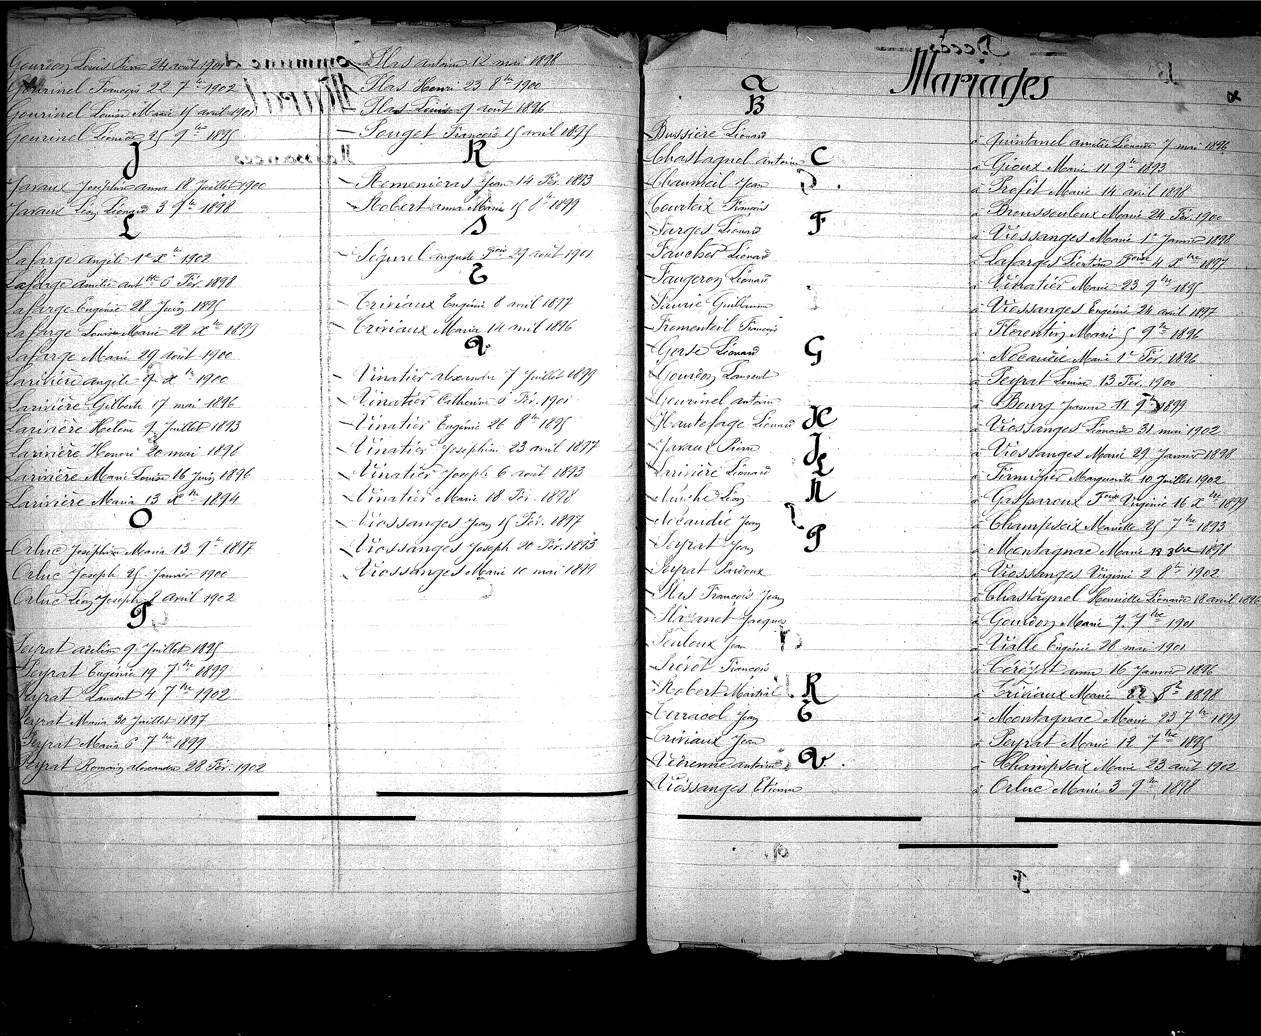 Gourdon Louis Pierre 24 août 1901
Gourinel François 22 7bre 1902
Gourinel Louise Marie 15 avril 1901
Gourinel Léonie 25 9bre 1895
J
Javaux Joséphine anna 18 Juillet 1900
Javaux Léon Léonard 3 9bre 1898
L
Lafarge angèle 1er Xbre 1902
Lafarge amélie antte 6 Fév. 1898
Lafarge Eugénie 28 Juin 1895
Lafarge Louise Marie 28 Xbre 1899
Lafarge Marie 29 août 1900
Larivière angèle 9 Xbre 1900
Larivière Gilberte 17 mai 1896
Larivière Hélène 9 Juillet 1893
Larivière Henri 20 mai 1898
Larivière Marie Louise 16 Juin 1896
Larivière Maria 13 Xbre 1894
O
Orluc Joséphine Maria 13 9bre 1897
Orluc Joseph 25 Janvier 1900
Orluc Léon Joseph 8 avril 1902
P
Peyrat adeline 9 Juillet 1895
Peyrat Eugénie 19 7bre 1899
Peyrat Laurent 4 7bre 1902
Peyrat Maria 30 Juillet 1897
Peyrat Maria 6 7bre 1899
Peyrat Romain alexandre 28 Fév. 1902
Plas antoine 12 mai 1898
Plas Henri 23 8bre 1900
Plas Louise 9 août 1896
Pouget François 15 avril 1895
R
Remenieras Jean 14 Fév. 1893
Robert anna Marie 15 8bre 1899
S
Ségurel auguste 29 août 1901
T
Triviaux Eugénie 8 avril 1897
Triviaux Maria 14 avril 1896
V
Vinatier alexandre 7 Juillet 1899
Vinatier Catherine 6 Fév. 1901
Vinatier Eugénie 26 8bre 1895
Vinatier Joséphine 23 avril 1897
Vinatier Joseph 6 août 1893
Vinatier Marie 18 Fév. 1898
Viossanges Jean 15 Fév. 1897
Viossanges Joseph 20 Fév. 1893
Viossanges Marie 10 mai 1899
Mariages
a
B
Bussière Léonard à Quintanel amélie Léonarde 7 mai 1896
Chastagnol antoine C à Gioux Marie 11 9bre 1893
Chaumeil Jean à Profit Marie 14 avril 1898
Courteix François à Broussouloux Marie 24 Fév. 1900
Farges Léonard F à Viossanges Marie 1er Janvier 1898
Faucher Léonard à Lafarges Léontine 4 Xbre 1897
Faugeron Léonard à Vinatier Marie 23 9bre 1895
Faurie Guillaume à Viossanges Eugénie 24 avril 1897
Fromenteil François à Florentin Marie 5 9bre 1896
Gorse Léonard G à Nécaudie Marie 1er Fév. 1896
Gourdon Laurent à Peyrat Louise 13 Fév. 1900
Gourinel antoine à Bourg Jeanne 11 9bre 1899
Hautefage Léonard H à Viossanges Léonarde 31 mai 1902
Javaux Pierre J à Viossanges Marie 29 Janvier 1898
Larivière Léonard L à Firmigier Marguerite 10 Juillet 1902
Léon N à Gasparoux Virginie 16 Xbre 1899
Nécaudie Jean à Champseix Mariette 25 7bre 1893
Peyrat Jean P à Montagnac Marie 1898
Peyrat Pardoux à Viossanges Virginie 2 8bre 1902
Plas François Jean à Chastagnol Henriette Léonarde 18 avril 1896
Jacques à Gourdon Marie 7 7bre 1901
Pouloux Jean à Vialle Eugénie 28 mai 1901
Prévot François à anna 16 Janvier 1896
Robert Martial R à Triviaux Marie 22 8bre 1898
Terracol Jean T à Montagnac Marie 23 7bre 1899
Triviaux Jean à Peyrat Marie 12 7bre 1895
Védrenne antoine V à Champseix Marie 23 août 1902
Viossanges Etienne à Orluc Marie 3 9bre 1898